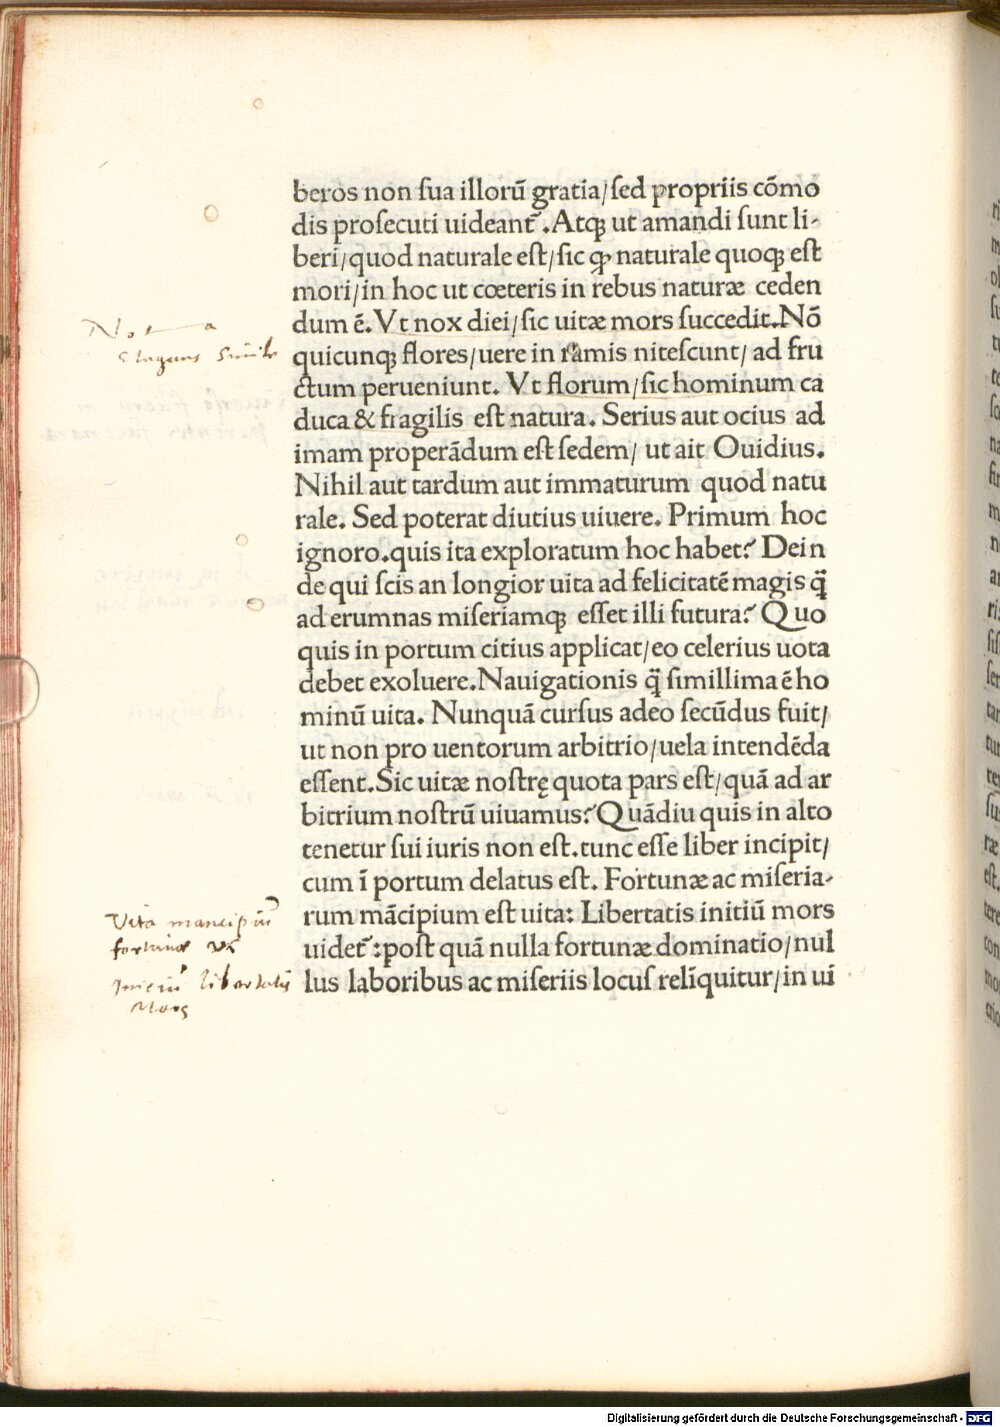 beros non ſua illorū gratia/ſed propriis cōmo
dis proſecuti uideant᷑.Atqꝫ ut amandi ſunt li-
beri/quod naturale eſt/ſic ꝙ naturale quoqꝫ eſt
mori/in hoc ut cœteris in rebus naturæ ceden
dum ē.Vt nox diei/ſic uitæ mors ſuccedit.Nō
quicunqꝫ flores/uere in ramis niteſcunt/ ad fru
ctum perueniunt. Vt florum/ſic hominum ca
duca & fragilis eſt natura. Serius aut ocius ad
imam properādum eſt ſedem/ ut ait Ouidius.
Nihil aut tardum aut immaturum quod natu
rale. Sed poterat diutius uiuere. Primum hoc
ignoro.quis ita exploratum hoc habet? Dein
de qui ſcis an longior uita ad felicitatē magis q̄
ad erumnas miſeriamqꝫ eſſet illi futura? Quo
quis in portum citius applicat/eo celerius uota
debet exoluere.Nauigationis q̄ ſimillima ē ho
minū uita. Nunquā curſus adeo ſecūdus fuit/
ut non pro uentorum arbitrio/uela intendēda
eſſent.Sic uitæ noſtrę quota pars eſt/quā ad ar
bitrium noſtrū uiuamus?Quādiu quis in alto
tenetur ſui iuris non eſt.tunc eſſe liber incipit/
cum ī portum delatus eſt. Fortunæ ac miſeria-
rum mācipium eſt uita: Libertatis initiū mors
uidet᷑:poſt quā nulla fortunæ dominatio/nul
lus laboribus ac miſeriis locuſ relīquitur/in ui
Nota
Elegans Simile
Vita mancipiū
fortunæ
Iniciū libertatis
Mors
Digitalisierung gefördert durch die Deutsche Forschungsgemeinschaft - DFG